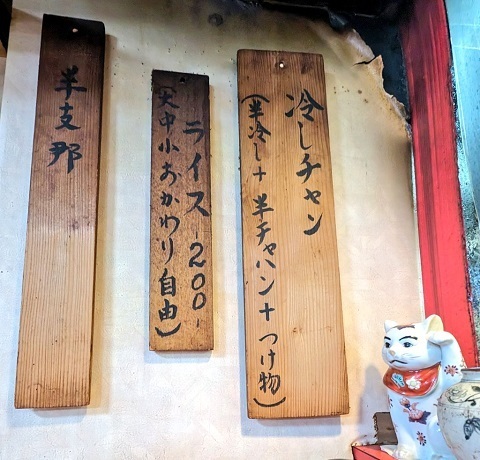 冷しチャン
(半冷し+半チャハン+つけ物)
ライス-200-
(大中小おかわり自由)
半支那